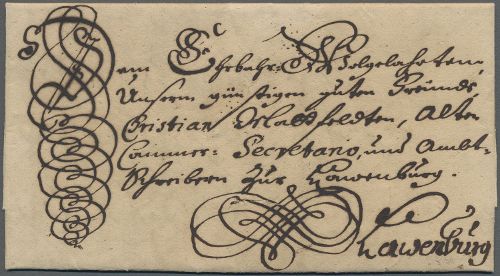 Dem Ehrbahr: Wolgelahrtem,
Unserm günstigen guten Freünde,
Christian Schlaedfeldten, Alten
Cammer= Secretario, und Ambt=
Schreibern Zur Lawenburg.
Lawenbürg